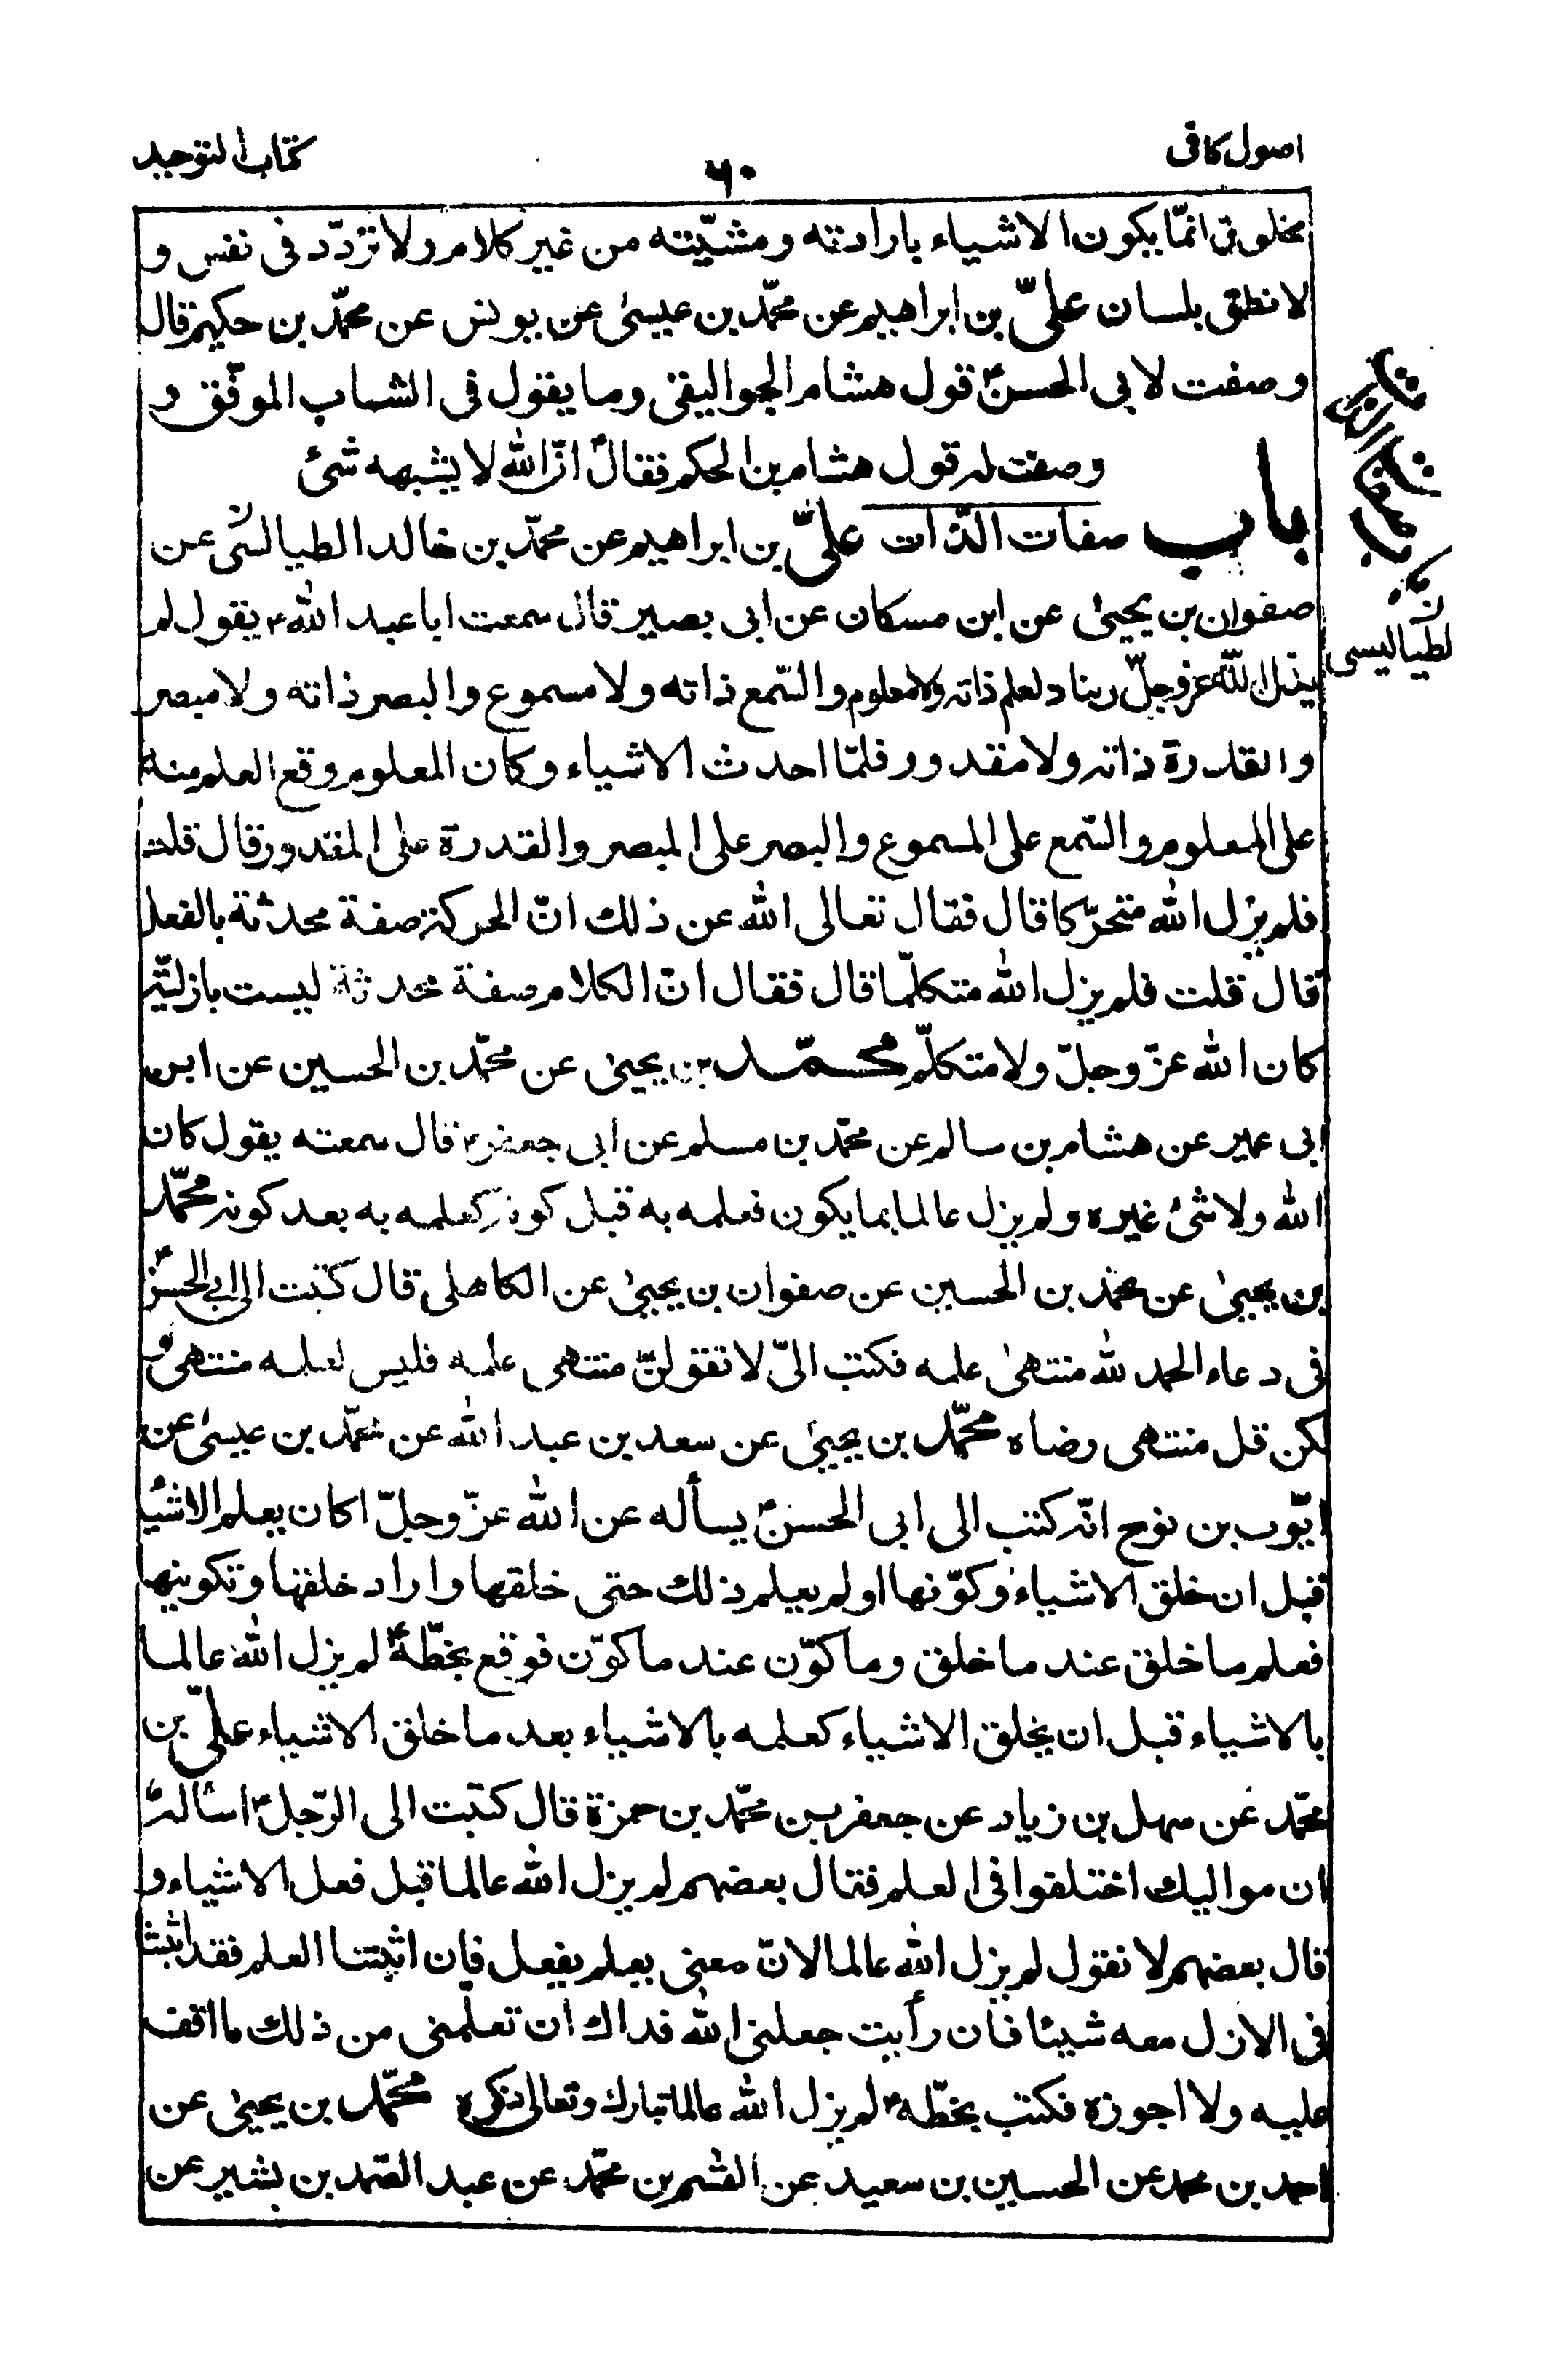 اصول کافی
۶۰
کتاب التوحید
مخلوق انّما یکون الاشیاء بارادته ومشیّته من غیر کلام ولا تردّد فی نفس و
لا نطق بلسان علیّ بن ابراهیم عن محمّد بن عیسیٰ عن یونس عن محمّد بن حکیم قال
وصفت لابی الحسن؏ قول هشام الجوالیقی وما یقول فی الشاب الموفّق و
وصفت له قول هشام بن الحکم فقال؏ انّ الله لا یشبهه شئ
باب صفات الذّات علیّ بن ابراهیم عن محمّد بن خالد الطیالسی عن
صفوان بن یحییٰ عن ابن مسکان عن ابی بصیر قال سمعت ابا عبد الله؏ یقول لم
یزل الله عزّ وجلّ ربنا والعلم ذاته ولا معلوم والسّمع ذاته ولا مسموع والبصر ذاته ولا مبصر
والقدرة ذاته ولا مقدور فلمّا احدث الاشیاء وکان المعلوم وقع العلم منه
علی المعلوم والسّمع علی المسموع والبصر علی المبصر والقدرة علی المقدور قال قلت
فلم یزل الله متحرّکا قال فقال تعالی الله عن ذلك انّ الحرکة صفة محدثة بالفعل
قال قلت فلم یزل الله متکلّما قال فقال انّ الکلام صفة محدثة لیست بازلیّة
کان الله عزّ وجلّ ولا متکلّم محمّد بن یحییٰ عن محمّد بن الحسین عن ابن
ابی عمیر عن هشام بن سالم عن محمّد بن مسلم عن ابی جعفر؏ قال سمعته یقول کان
الله ولا شئ غیره ولم یزل عالما بما یکون فعلمه به قبل کونه کعلمه به بعد کونه محمّد
بن یحییٰ عن محمد بن الحسین عن صفوان بن یحییٰ عن الکاهلی قال کتبت الی ابی الحسن؏
فی دعاء الحمد لله منتهیٰ علمه فکتب الیّ لا تقولنّ منتهی علمه فلیس لعلمه منتهی و
لکن قل منتهی رضاه محمّد بن یحییٰ عن سعد بن عبد الله عن محمّد بن عیسیٰ عن
ایّوب بن نوح انّه کتب الی ابی الحسن؏ یسأله عن الله عزّ وجلّ اکان یعلم الاشیاء
قبل ان خلق الاشیاء وکوّنها اولم یعلم ذلك حتی خلقها واراد خلقها وتکوینها
فعلم ما خلق عند ما خلق وما کوّن عند ما کوّن فوقع بخطّه؏ لم یزل الله عالما
بالاشیاء قبل ان یخلق الاشیاء کعلمه بالاشیاء بعد ما خلق الاشیاء علیّ بن
محمّد عن سهل بن زیاد عن جعفر بن محمّد بن حمزة قال کتبت الی الرّجل؏ اسأله
ان موالیك اختلفوا فی العلم فقال بعضهم لم یزل الله عالما قبل فعل الاشیاء و
قال بعضهم لا نقول لم یزل الله عالما لانّ معنی یعلم یفعل فان اثبتنا العلم فقد اثبتنا
فی الازل معه شیئا فان رأیت جعلنی الله فداك ان تعلّمنی من ذلك ما اقف
علیه ولا اجوزه فکتب بخطّه؏ لم یزل الله عالما تبارك وتعالی ذکره محمّد بن یحییٰ عن
احمد بن محمد عن الحسین بن سعید عن القسم بن محمّد عن عبد الصّمد بن بشیر عن
الطیالیسی